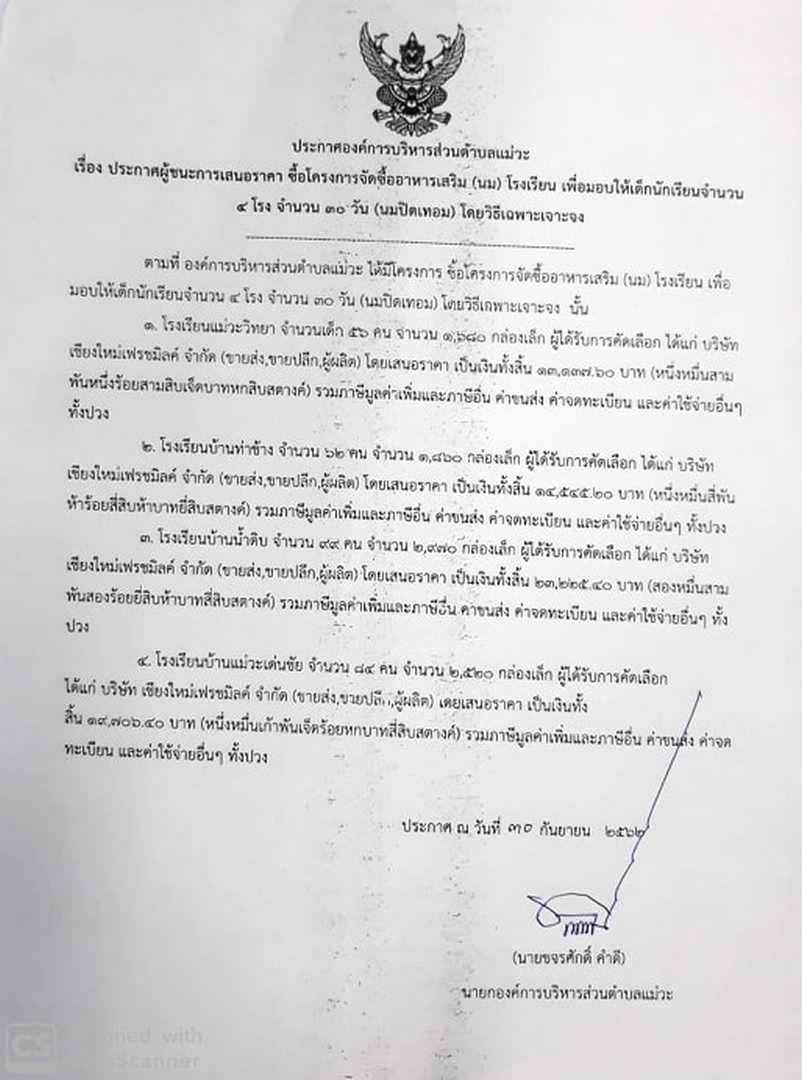 ประกาศองค์การบริหารส่วนตำบลแม่วะ
เรื่อง ประกาศผู้ชนะการเสนอราคา ซื้อโครงการจัดซื้ออาหารเสริม (นม) โรงเรียน เพื่อมอบให้เด็กนักเรียนจำนวน
๔ โรง จำนวน ๓๐ วัน (นมปิดเทอม) โดยวิธีเฉพาะเจาะจง
ตามที่ องค์การบริหารส่วนตำบลแม่วะ ได้มีโครงการ ซื้อโครงการจัดซื้ออาหารเสริม (นม) โรงเรียน เพื่อ
มอบให้เด็กนักเรียนจำนวน ๔ โรง จำนวน ๓๐ วัน (นมปิดเทอม) โดยวิธีเฉพาะเจาะจง นั้น
๑. โรงเรียนแม่วะวิทยา จำนวนเด็ก ๕๖ คน จำนวน ๑,๖๘๐ กล่องเล็ก ผู้ได้รับการคัดเลือก ได้แก่ บริษัท
เชียงใหม่เฟรชมิลค์ จำกัด (ขายส่ง,ขายปลีก,ผู้ผลิต) โดยเสนอราคา เป็นเงินทั้งสิ้น ๑๓,๑๓๗.๖๐ บาท (หนึ่งหมื่นสาม
พันหนึ่งร้อยสามสิบเจ็ดบาทหกสิบสตางค์) รวมภาษีมูลค่าเพิ่มและภาษีอื่น ค่าขนส่ง ค่าจดทะเบียน และค่าใช้จ่ายอื่นๆ
ทั้งปวง
๒. โรงเรียนบ้านท่าช้าง จำนวน ๖๒ คน จำนวน ๑,๘๖๐ กล่องเล็ก ผู้ได้รับการคัดเลือก ได้แก่ บริษัท
เชียงใหม่เฟรชมิลค์ จำกัด (ขายส่ง,ขายปลีก,ผู้ผลิต) โดยเสนอราคา เป็นเงินทั้งสิ้น ๑๔,๕๔๕.๒๐ บาท (หนึ่งหมื่นสี่พัน
ห้าร้อยสี่สิบห้าบาทยี่สิบสตางค์) รวมภาษีมูลค่าเพิ่มและภาษีอื่น ค่าขนส่ง ค่าจดทะเบียน และค่าใช้จ่ายอื่นๆ ทั้งปวง
๓. โรงเรียนบ้านน้ำดิบ จำนวน ๙๙ คน จำนวน ๒,๙๗๐ กล่องเล็ก ผู้ได้รับการคัดเลือก ได้แก่ บริษัท
เชียงใหม่เฟรชมิลค์ จำกัด (ขายส่ง,ขายปลีก,ผู้ผลิต) โดยเสนอราคา เป็นเงินทั้งสิ้น ๒๓,๒๒๕.๔๐ บาท (สองหมื่นสาม
พันสองร้อยยี่สิบห้าบาทสี่สิบสตางค์) รวมภาษีมูลค่าเพิ่มและภาษีอื่น ค่าขนส่ง ค่าจดทะเบียน และค่าใช้จ่ายอื่นๆ ทั้ง
ปวง
๔. โรงเรียนบ้านแม่วะเด่นชัย จำนวน ๘๔ คน จำนวน ๒,๕๒๐ กล่องเล็ก ผู้ได้รับการคัดเลือก
ได้แก่ บริษัท เชียงใหม่เฟรชมิลค์ จำกัด (ขายส่ง,ขายปลีก,ผู้ผลิต) โดยเสนอราคา เป็นเงินทั้ง
สิ้น ๑๙,๗๐๖.๔๐ บาท (หนึ่งหมื่นเก้าพันเจ็ดร้อยหกบาทสี่สิบสตางค์) รวมภาษีมูลค่าเพิ่มและภาษีอื่น ค่าขนส่ง ค่าจด
ทะเบียน และค่าใช้จ่ายอื่นๆ ทั้งปวง
ประกาศ ณ วันที่ ๓๐ กันยายน ๒๕๖๒
(นายขจรศักดิ์ คำดี)
นายกองค์การบริหารส่วนตำบลแม่วะ
CS Scanned with
CamScanner